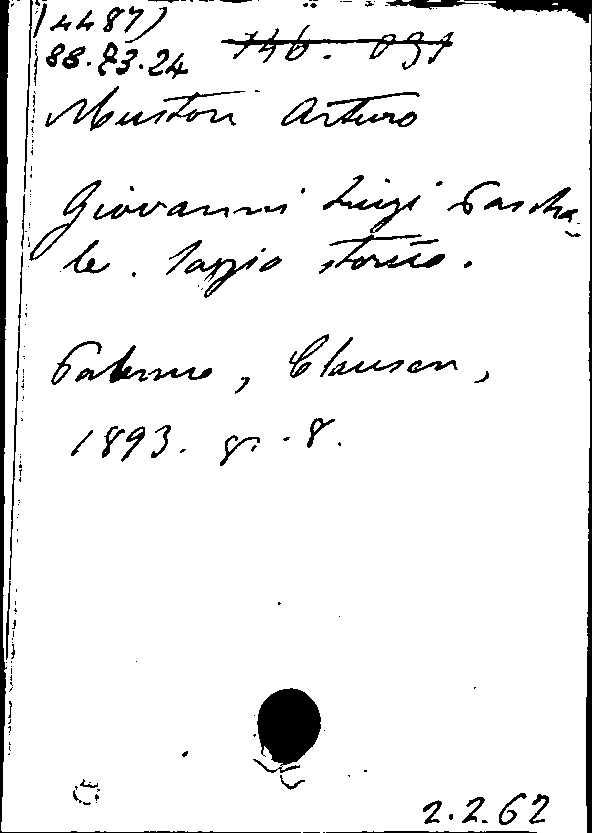 (4487)
88.E3.24 146.091
Muston Arturo
Giovanni Luigi Pascha-
le. Saggio storico.
Palermo, Clausen,
1893. gr. 8.
2.2.62